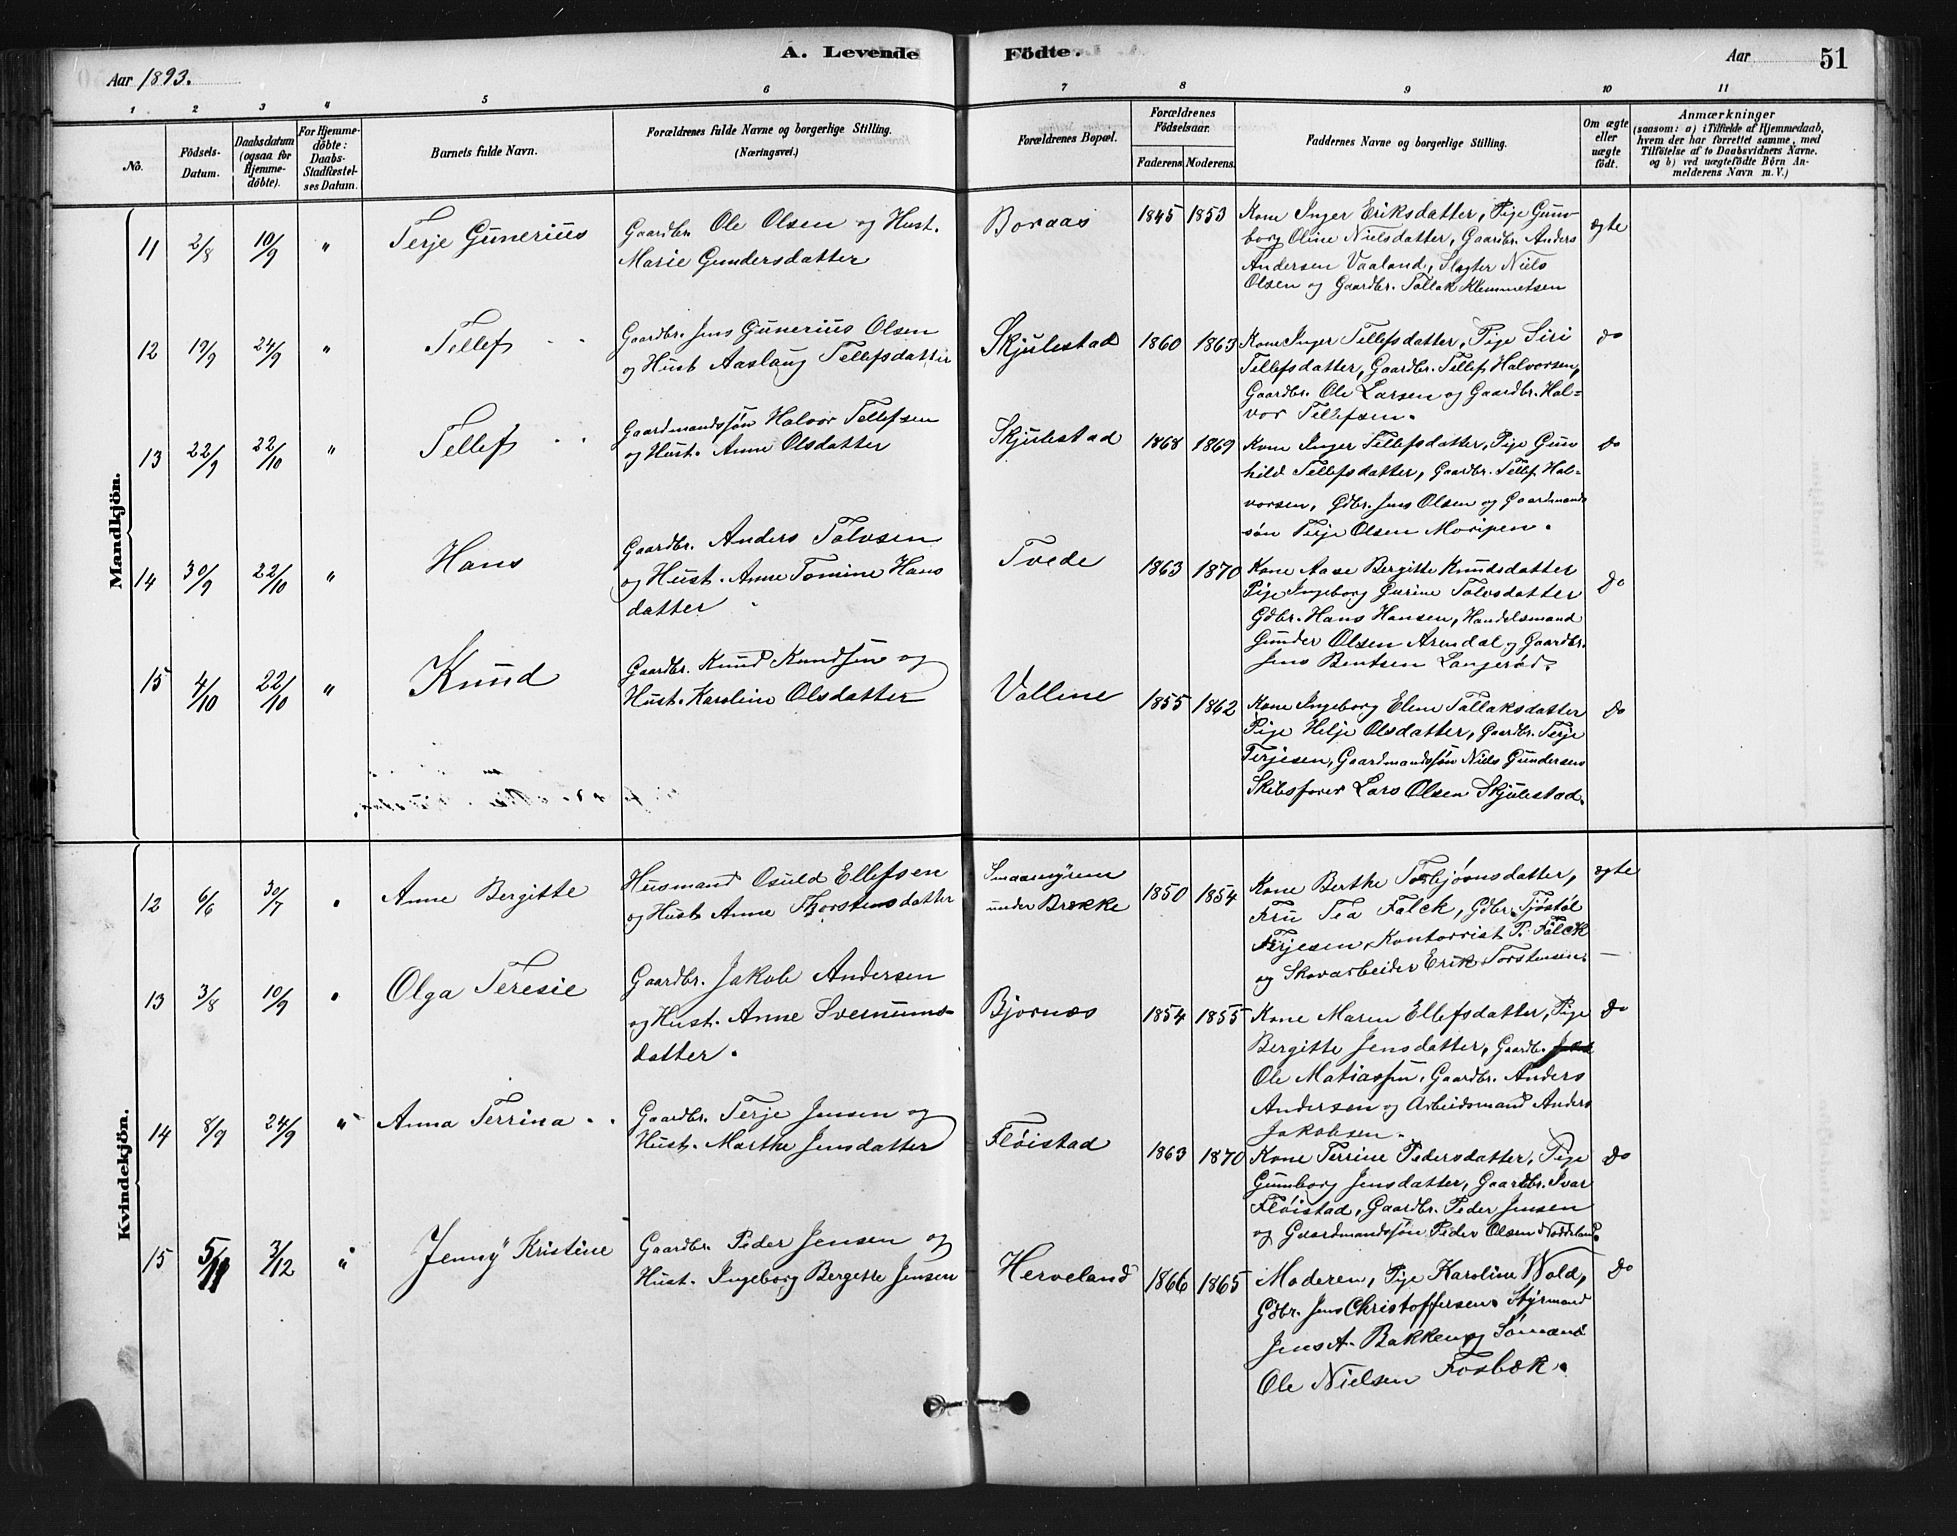 A. Levende Födte.
Aar 1893.
Aar
51
1 2 3 " 5 6 7 8 9 10 11
No.
Födsels-Datum.
Daabsdatum (ogsaa for Hjemmedöbte).
For Hjemmedöbte: Daabs-Stadfæstelses Datum.
Barnets fulde Navn.
Forældrenes fulde Navne og borgerlige Stilling.
(Næringsvei.)
Forældrenes Bopæl.
Forældrenes Födselsaar.
Faderens Moderens.
Faddernes Navne og borgerlige Stilling.
Om ægte eller uægte födt.
Anmærkninger
(saasom: a) i Tilfælde af Hjemmedaab,
hvem der har forrettet samme, med
Tilföielse af to Daabsvidners Navne.
og b) ved uægtefödte Börn Anmelderens Navn m. V.)
Mandkjön.
11 2/8 10/9 " Terje Gunerius
Gaardbr. Ole Olsen og Hust.
Marie Gundersdatter
Boraas 1845 1853
Kone Inger Eriksdatter, Pige Gun-
borg Oline Nielsdatter, Gaardbr. Anders
Andersen Vaaland, Slagter Niels
Olsen og Gaardbr. Tallak Klemmetsen
ægte
12 19/9 24/9 " Tellef
Gaardbr. Jens Gunerius Olsen
og Hust Aaslaug Tellefsdatter
Skjulestad 1860 1863
Kone Inger Tellefsdatter, Pige Siri
Tellefsdatter, Gaardbr. Tellef Halvorsen,
Gaardbr. Ole Larsen og Gaardbr. Hal-
vor Tellefsen.
do
13 22/9 22/10 " Tellef
Gaardmandssøn Halvor Tellefsen
og Hust. Anne Olsdatter
Skjulestad 1868 1869
Kone Inger Tellefsdatter, Pige Gun
hild Tellefsdatter, Gaardbr. Tellef Hal-
vorsen, Gdbr. Jens Olsen og Gaardmands
søn Terje Olsen Moripen.
do
14 30/9 22/10 " Hans
Gaardbr. Anders Tolvsen
og Hust. Anne Tomine Hans
datter
Tvede 1863 1870
Kone Aase Bergitte Knudsdatter
Pige Ingeborg Gurine Tolvsdatter
Gdbr. Hans Hansen, Handelsmand
Gunder Olsen Arendal og Gaardbr.
Jens Bentsen Langerød.
do
15 4/10 22/10 " Knud
Gaardbr. Knud Knudsen og
Hust. Karoline Olsdatter
Vallene 1855 1862
Kone Ingeborg Elene Tallaksdatter
Pige Helje Olsdatter, Gaardbr. Terje
Terjesen, Gaardmandssøn Niels Gundersen
Skibsfører Lars Olsen Skjulestad.
do
Kvindekjön.
12 6/6 30/7 " Anne Bergitte
Husmand Osuld Ellefsen
og Hust Anne Thorstensdatter
Smaamyrene
under Brække
1850 1854
Kone Berthe Torbjørnsdatter,
Fru Tea Falck, Gdbr. Tjøstøl
Terjesen, Kontorrist P. Falck
og Skovarbeider Erik Torstensen.
ægte
13 3/8 10/9 " Olga Teresie
Gaardbr. Jakob Andersen
og Hust. Anne Svernums-
datter.
Bjornæs 1854 1855
Kone Maren Ellefsdatter, Pige
Bergitte Jensdatter, Gaardbr.
Ole Matiassen, Gaardbr. Anders
Andersen og Arbeidsmand Anders
Jakobsen.
do
14 8/9 24/9 " Anna Terrina
Gaardbr. Terje Jensen og
Hust. Marthe Jensdatter
Fløistad 1863 1870
Kone Terrine Pedersdatter, Pige
Gunborg Jensdatter, Gaardbr. Ivar
Fløistad, Gaardbr. Peder Jensen
og Gaardmandssøn Peder Olsen Nodeland.
do
15 5/11 3/12 " Jenny Kristine
Gaardbr. Peder Jensen og
Hust. Ingeborg Bergette Jensen
Herveland 1866 1865
Moderen, Pige Karoline Wold,
Gdbr. Jens Christoffersen. Styrmand
Jens A. Bakken og Sømand
Ole Nielsen Fosbæk.
do